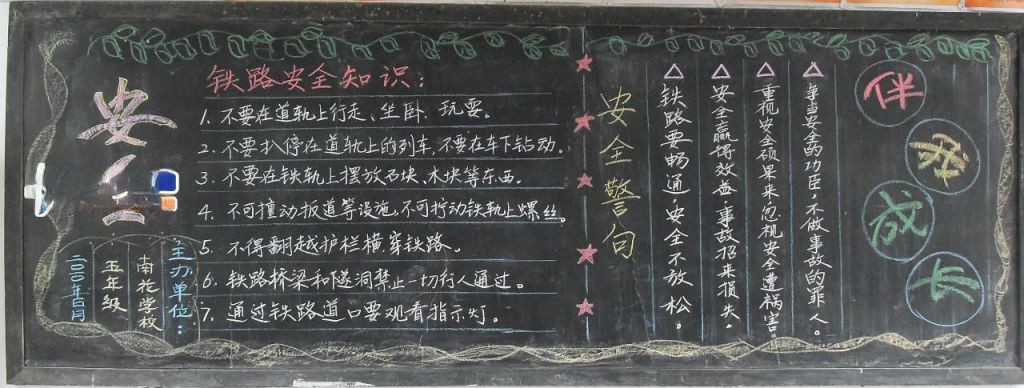 安全
铁路安全知识：
1. 不要在道轨上行走、坐卧、玩耍。
2. 不要扒停在道轨上的列车,不要在车下钻动。
3. 不要在铁轨上摆放石块、木块等东西。
4. 不可撞动扳道等设施,不可拧动铁轨上螺丝。
5. 不得翻越护栏横穿铁路。
6. 铁路桥梁和隧洞禁止一切行人通过。
7. 通过铁路道口要观看指示灯。
主办单位：
南花学校
五年级
安全警句
△铁路要畅通，安全不放松。
△安全赢得效益，事故招来损失。
△重视安全硕果来，忽视安全遭祸害。
△争当安全的功臣，不做事故的罪人。
伴我成长